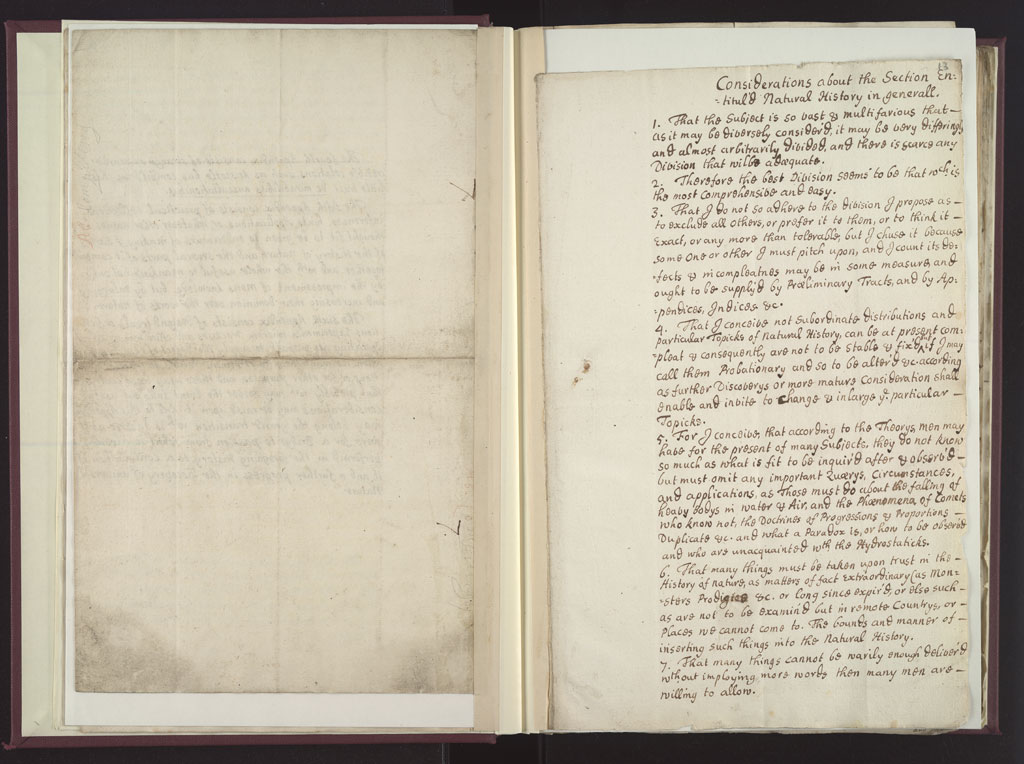 13
Considerations about the Section En:
-titul'd Natural History in generall.
1. That the Subject is so vast & multifarious that –
as it may be diversely considerd, it may be very differingly
and almost arbitrarily divided, and there is scarce any
Division that wilbe adæquate.
2. Therefore the best Division seems to be that wch is
the most comprehensive and easy.
3. That J do not so adhere to the division J propose as –
to exclude all others, or prefer it to them, or to think it –
Exact, or any more than tolerable, but J chuse it because
some One or other J must pitch upon, and J count its de:
-fects & incompleatnes may be in some measure, and
ought to be supply'd by Præliminary Tracts, and by Ap:
-pendices, Jndices &c.
4. That J conceive not Subordinate distributions and
particular Topicks of Natural History, can be at present com:
-pleat & consequently are not to be stable & fix'd, if J may
call them Probationary and so to be alter'd &c. according
as further Discoverys or more mature Consideration shall
enable and invite to Change & inlarge ye. particular –
Topicks.
5. For J conceive, that according to the Theorys, men may
have for the present of many Subjects, they do not know
so much as what is fit to be inquir'd after & observ'd –
but must omit any important Quærys, Circumstances,
and applications, as Those must do about the falling of
heavy bodys in water & Air, and the Phænomena of Comets
who know not, the Doctrines of Progressions & Proportions –
Duplicate &c. and what a Paradox is, or how to be observd
and who are unacquainted wth the Hydrostaticks.
6. That many things must be taken upon trust in the –
History of Nature, as matters of fact Extraordinary (as Mon:
-sters Prodigies &c. or long since expir'd, or else such –
as are not to be examin'd but in remote Countrys, or –
Places we cannot come to. The bounds and manner of –
inserting such things into the Natural History.
7. That many things cannot be warily enough deliver'd
wthout imploying more words then many men are –
willing to allow.